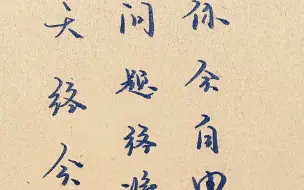 你会自由
问题终将
天终会